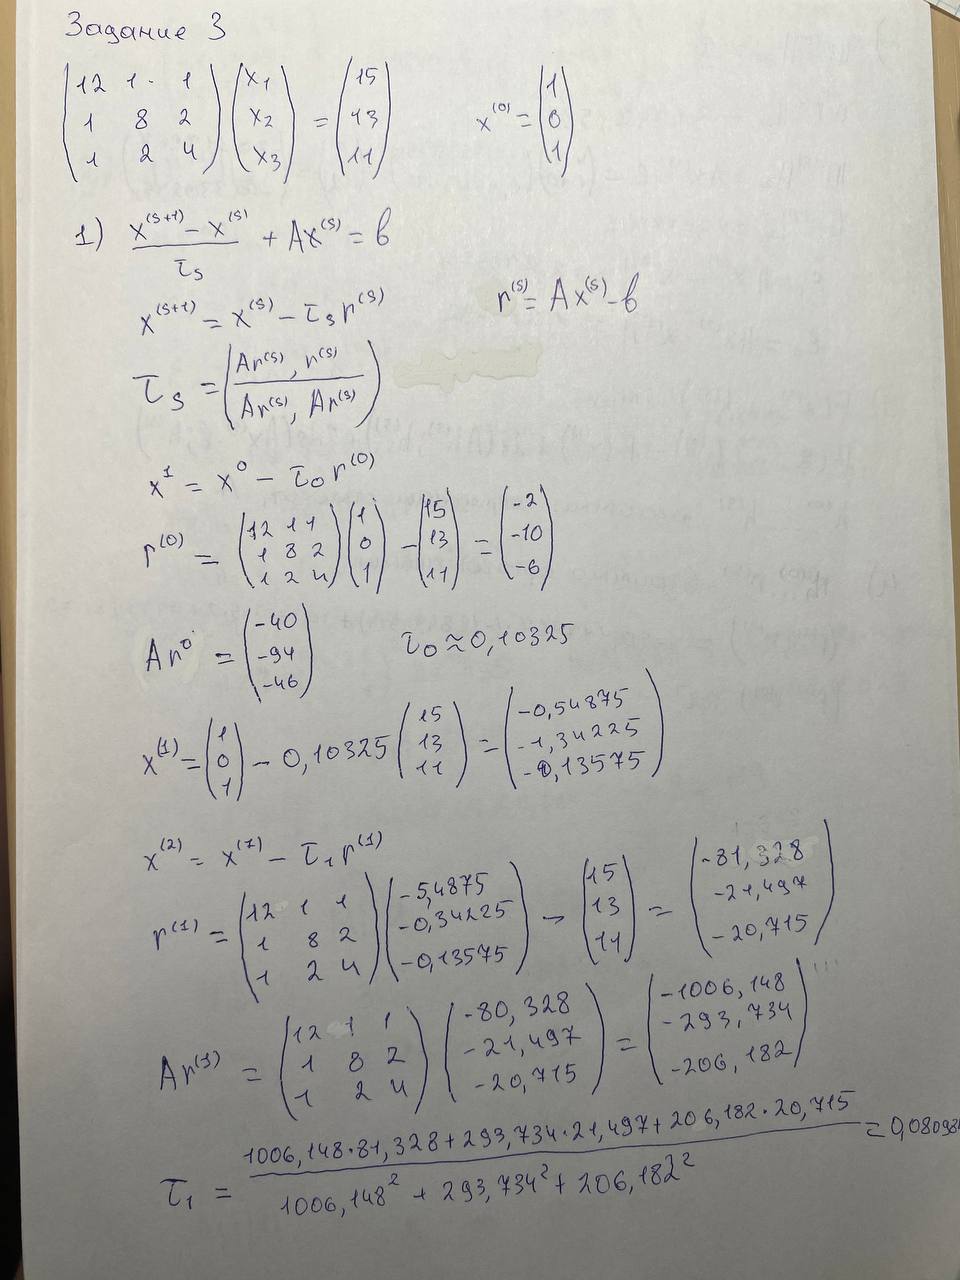 Задание 3
(12 1 1; 1 8 2; 1 2 4) (x₁; x₂; x₃) = (15; 13; 11)   x⁽⁰⁾ = (1; 0; 1)
1) (x⁽ˢ⁺¹⁾ − x⁽ˢ⁾)/τₛ + Ax⁽ˢ⁾ = b
x⁽ˢ⁺¹⁾ = x⁽ˢ⁾ − τₛ r⁽ˢ⁾   r⁽ˢ⁾ = Ax⁽ˢ⁾ − b
τₛ = ((Ar⁽ˢ⁾, r⁽ˢ⁾)/(Ar⁽ˢ⁾, Ar⁽ˢ⁾))
x¹ = x⁰ − τ₀ r⁽⁰⁾
r⁽⁰⁾ = (12 1 1; 1 8 2; 1 2 4) (1; 0; 1) − (15; 13; 11) = (-2; -10; -6)
Ar⁰ = (-40; -94; -46)   τ₀ ≈ 0,10325
x⁽¹⁾ = (1; 0; 1) − 0,10325 (15; 13; 11) = (-0,54875; -1,34225; -0,13575)
x⁽²⁾ = x⁽¹⁾ − τ₁ r⁽¹⁾
r⁽¹⁾ = (12 1 1; 1 8 2; 1 2 4) (-5,4875; -0,34225; -0,13575) − (15; 13; 11) = (-81,328; -21,497; -20,715)
Ar⁽¹⁾ = (12 1 1; 1 8 2; 1 2 4) (-80,328; -21,497; -20,715) = (-1006,148; -293,734; -206,182)
τ₁ = (1006,148·81,328 + 293,734·21,497 + 206,182·20,715)/(1006,148² + 293,734² + 206,182²) = 0,08098